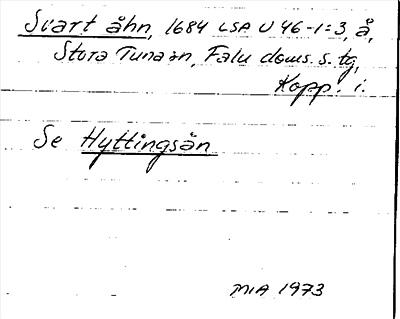 Svart åhn, 1684 LSA U 46-1:3, å,
Stora Tuna sn, Falu doms. s. tg,
Kopp. i.
Se Hyttingsån
MIA 1973